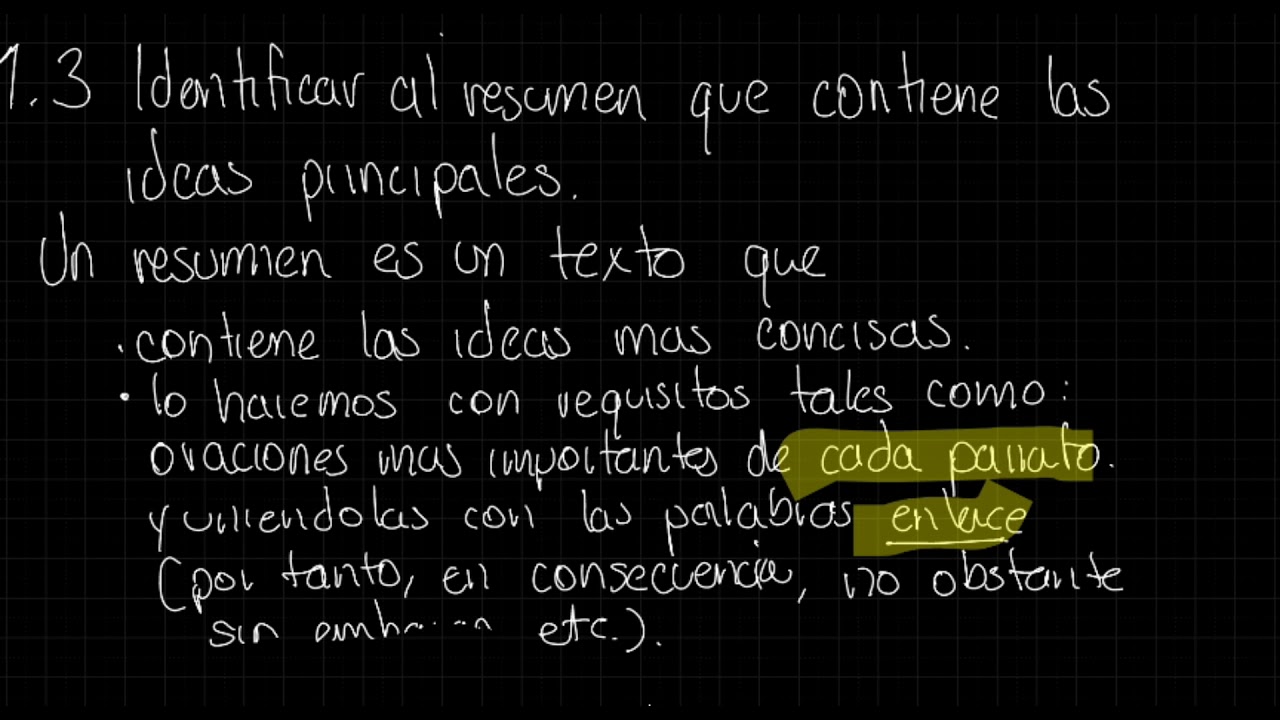 1.3 Identificar al resumen que contiene las
ideas principales.
Un resumen es un texto que
· contiene las ideas mas concisas.
· lo hacemos con requisitos tales como:
oraciones mas importantes de cada parrafo.
y uniendolas con las palabras enlace
(por tanto, en consecuencia, no obstante
sin etc.).